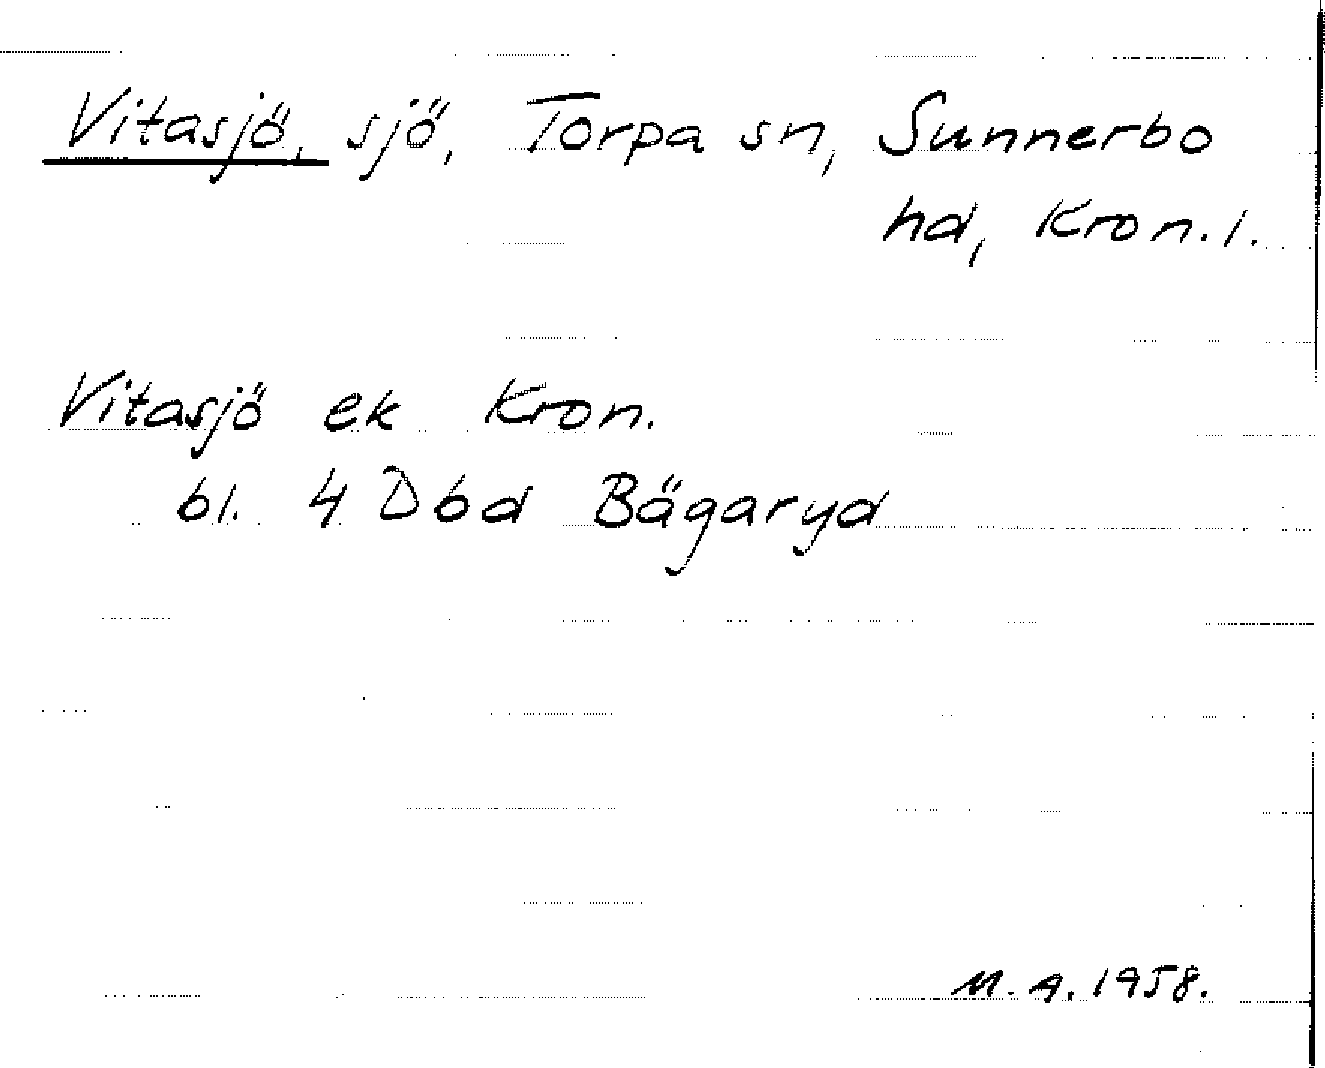 Vitasjö, sjö, Torpa sn, Sunnerbo
hd, Kron. l.
Vitasjö ek Kron.
bl. 4 Dbd Bägaryd
M. A. 1958.